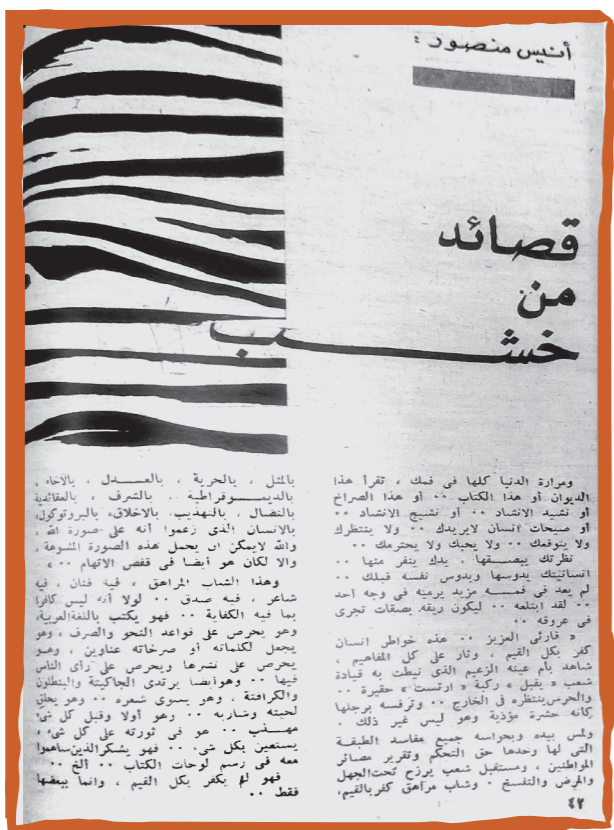 أنيس منصور :
قصائد
من
خشب
ومرارة الدنيا كلها فى فمك ، تقرأ هذا
الديوان أو هذا الكتاب ٠٠ أو هذا الصراخ
أو نشيد الانشاد ٠٠ أو نشيج الانشاد ٠٠
أو صيحات انسان لايريدك ٠٠ ولا ينتظرك
ولا يتوقعك ٠٠ ولا يحبك ولا يحترمك ٠٠
نظرتك يبصقها ، يدك ينفر منها ٠٠
انسانيتك يدوسها ويدوس نفسه قبلك ٠٠
لم يعد فى فمه مزيد يرميه فى وجه أحد
٠٠ لقد ابتلعه ٠٠ ليكون ريقه بصقات تجرى
فى عروقه ٠٠
« قارئى العزيز ٠٠ هذه خواطر انسان
كفر بكل القيم ، وثار على كل المفاهيم ،
شاهد بأم عينه الزعيم الذى نيطت به قيادة
شعب « يقبل » ركبة « ارتست » حقيرة ٠٠
والحرس ينتظره فى الخارج ٠٠ وترفسه برجلها
كأنه حشرة مؤذية وهو ليس غير ذلك ٠
ولمس بيده وبحواسه جميع مفاسد الطبقة
التى لها وحدها حق التحكم وتقرير مصائر
المواطنين ، ومستقبل شعب يرزح تحت الجهل
والمرض والتفسخ ٠ وشاب مراهق كفر بالقيم،
بالمثل ، بالحرية ، بالعدل ، بالاخاء ،
بالديموقراطية ٠٠ بالشرف ، بالعقائدية
بالنضال ، بالتهذيب بالاخلاق، بالبروتوكول،
بالانسان الذى زعموا أنه على صورة الله ،
والله لايمكن ان يحمل هذه الصورة المشوهة،
والا لكان هو أيضا فى قفص الاتهام ٠٠ »
وهذا الشاب المراهق ، فيه فنان ، فيه
شاعر ، فيه صدق ٠٠ لولا أنه ليس كافرا
بما فيه الكفاية ٠٠ فهو يكتب باللغة العربية،
وهو يحرص على قواعد النحو والصرف ، وهو
يجعل لكلماته أو صرخاته عناوين ، وهو
يحرص على نشرها ويحرص على رأى الناس
فيها ٠٠ وهو أيضا يرتدى الجاكيتة والبنطلون
والكرافتة ، وهو يسوى شعره ٠٠ وهو يحلق
لحيته وشاربه ٠٠ وهو أولا وقبل كل شىء
مهذب ٠٠ هو فى ثورته على كل شىء ،
يستعين بكل شىء ٠٠ فهو يشكر الذين ساهموا
معه فى رسم لوحات الكتاب ٠٠ الخ ٠٠
فهو لم يكفر بكل القيم ، وانما ببعضها
فقط ٠٠
٤٢